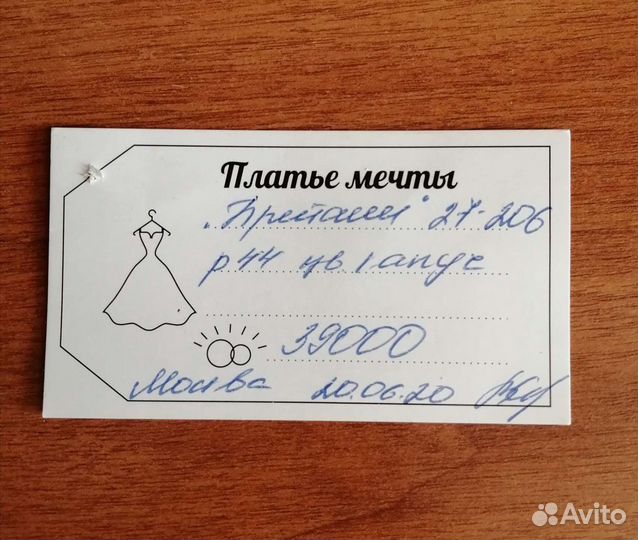 Платье мечты
„Британи" 27-206
р 44 цв.
39000
Москва 20.06.20
Avito